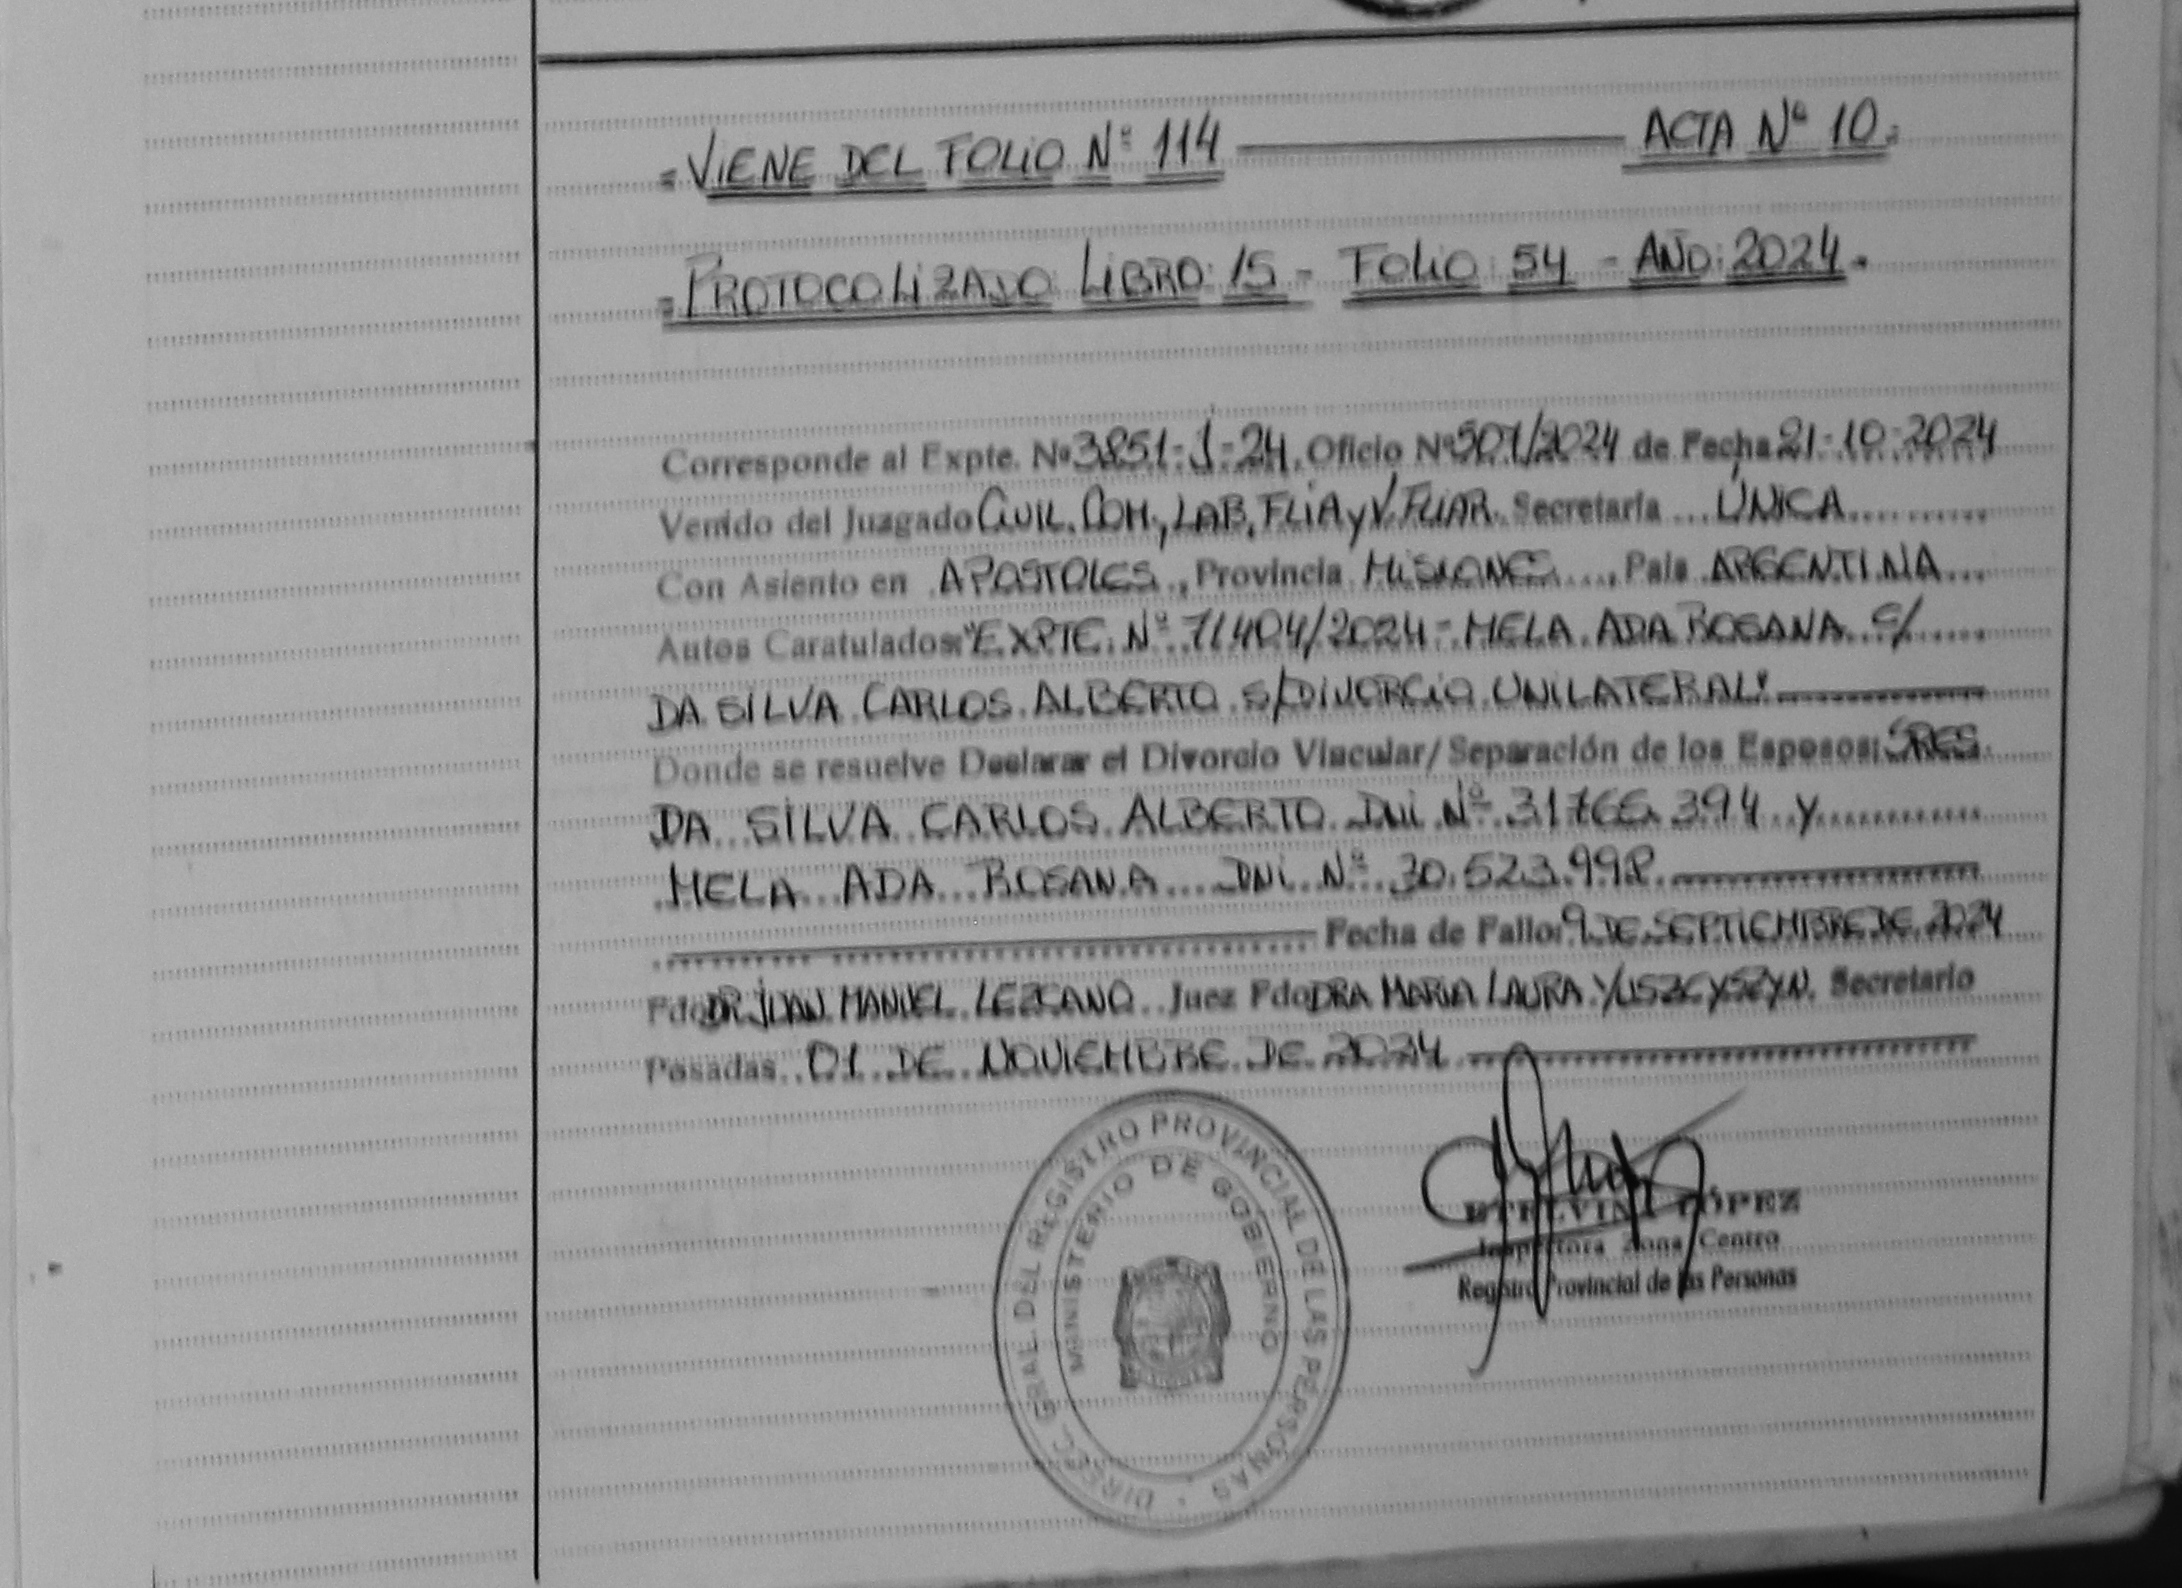 = VIENE DEL FOLIO Nº 114 ACTA Nº 10=
= PROTOCOLIZADO LIBRO: 15 - FOLIO: 54 - AÑO: 2024.
Corresponde al Expte. Nº 3851-J-24, Oficio Nº 507/2024 de Fecha 21-10-2024
Venido del Juzgado CIVIL. COM., LAB. FLIA y V. FLIAR. Secretaría ÚNICA
Con Asiento en APOSTOLES, Provincia MISIONES, País ARGENTINA
Autos Caratulados: "EXPTE. Nº 71404/2024 - MELA ADA ROSANA C/
DA SILVA CARLOS ALBERTO S/DIVORCIO UNILATERAL"
Donde se resuelve Declarar el Divorcio Vincular/Separación de los Esposos: SRES
DA SILVA CARLOS ALBERTO DNI Nº 31.766.394 y
MELA ADA ROSANA DNI Nº 30.523.998
Fecha de Fallo: 9 DE SEPTIEMBRE DE 2024
Fdo DR JUAN MANUEL LEZCANO Juez Fdo DRA MARIA LAURA YUSZCYSZYN Secretario
Posadas, 01 DE NOVIEMBRE DE 2024
DIREC. GRAL DEL REGISTRO PROVINCIAL DE LAS PERSONAS
MINISTERIO DE GOBIERNO
LÓPEZ
Inspectora Zona Centro
Registro Provincial de las Personas